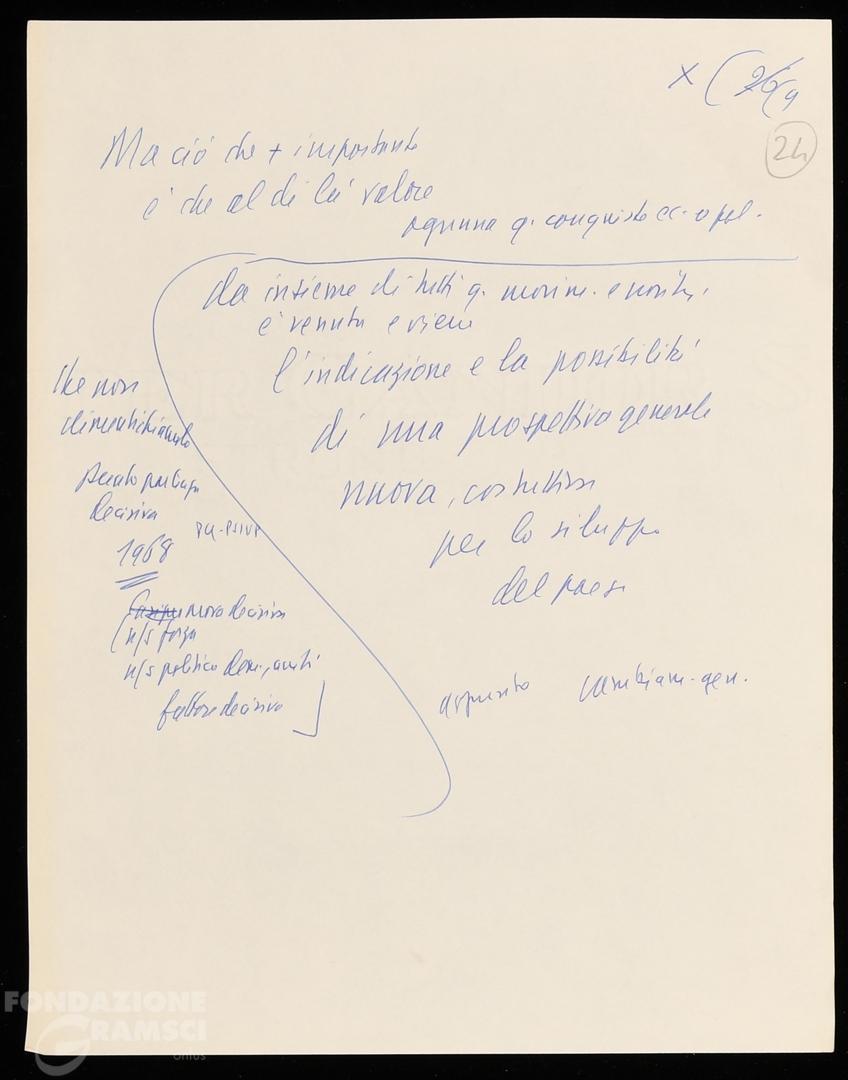 x (
24
Ma ciò che + importante
è che al di là valore
ognuna q. conquiste ec. o pol.
da insieme di tutti q. movim. e
è venuta e viene
l'indicazione e la possibilità
di una prospettiva generale
nuova, costruttiva
per lo sviluppo
del paese
che non
dimentichiamolo
decisiva
PCI-PSIUP
1968
nuova decisiva
n/s forza
n/s politica dem.
fattore decisivo
cambiam. gen.
FONDAZIONE
GRAMSCI
onlus